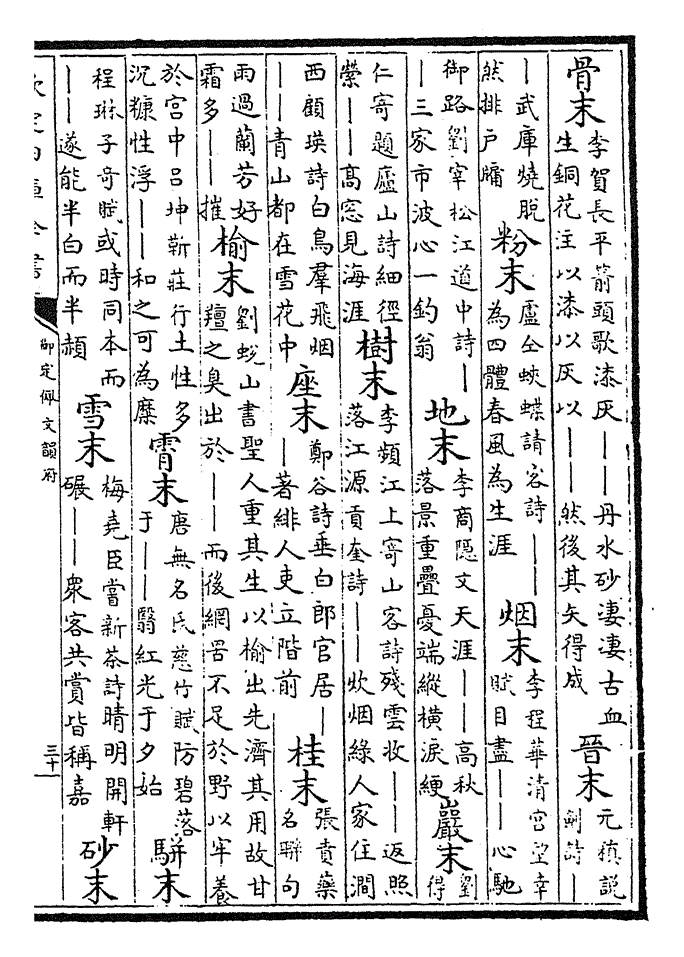 骨末李賀長平箭頭歌漆灰——丹水砂淒淒古血生銅花注以漆以灰以——然後其矢得成晉末元稹說劍詩—
—武庫燒脫然排戶牖粉末盧仝蛺蝶請客詩——為四體春風為生涯烟末李程華清宮望幸賦目盡——心馳
御路劉宰松江道中詩——三家市波心一釣翁地末李商隱文天涯——高秋落景重疊憂端縱橫淚綆巖末劉得
仁寄題廬山詩細徑縈——高窓見海涯樹末李頻江上寄山客詩殘雲收——返照落江源貢奎詩——炊烟綠人家住澗
西顧瑛詩白鳥羣飛烟——青山都在雪花中座末鄭谷詩垂白郎官居——著緋人吏立階前桂末張賁藥名聯句
雨過蘭芳好霜多——摧榆末劉蛻山書聖人重其生以榆出先濟其用故甘羶之臭出於——而後網罟不足於野以牢養
於宮中呂坤靳莊行土性多沉糠性浮——和之可為糜霄末唐無名氏慈竹賦防碧落于——翳紅光于夕始駢末
程琳子奇賦或時同本而——遂能半白而半頳雪末梅堯臣嘗新茶詩晴明開軒碾——衆客共賞皆稱嘉砂末
欽定四庫全書
御定佩文韻府
三十一